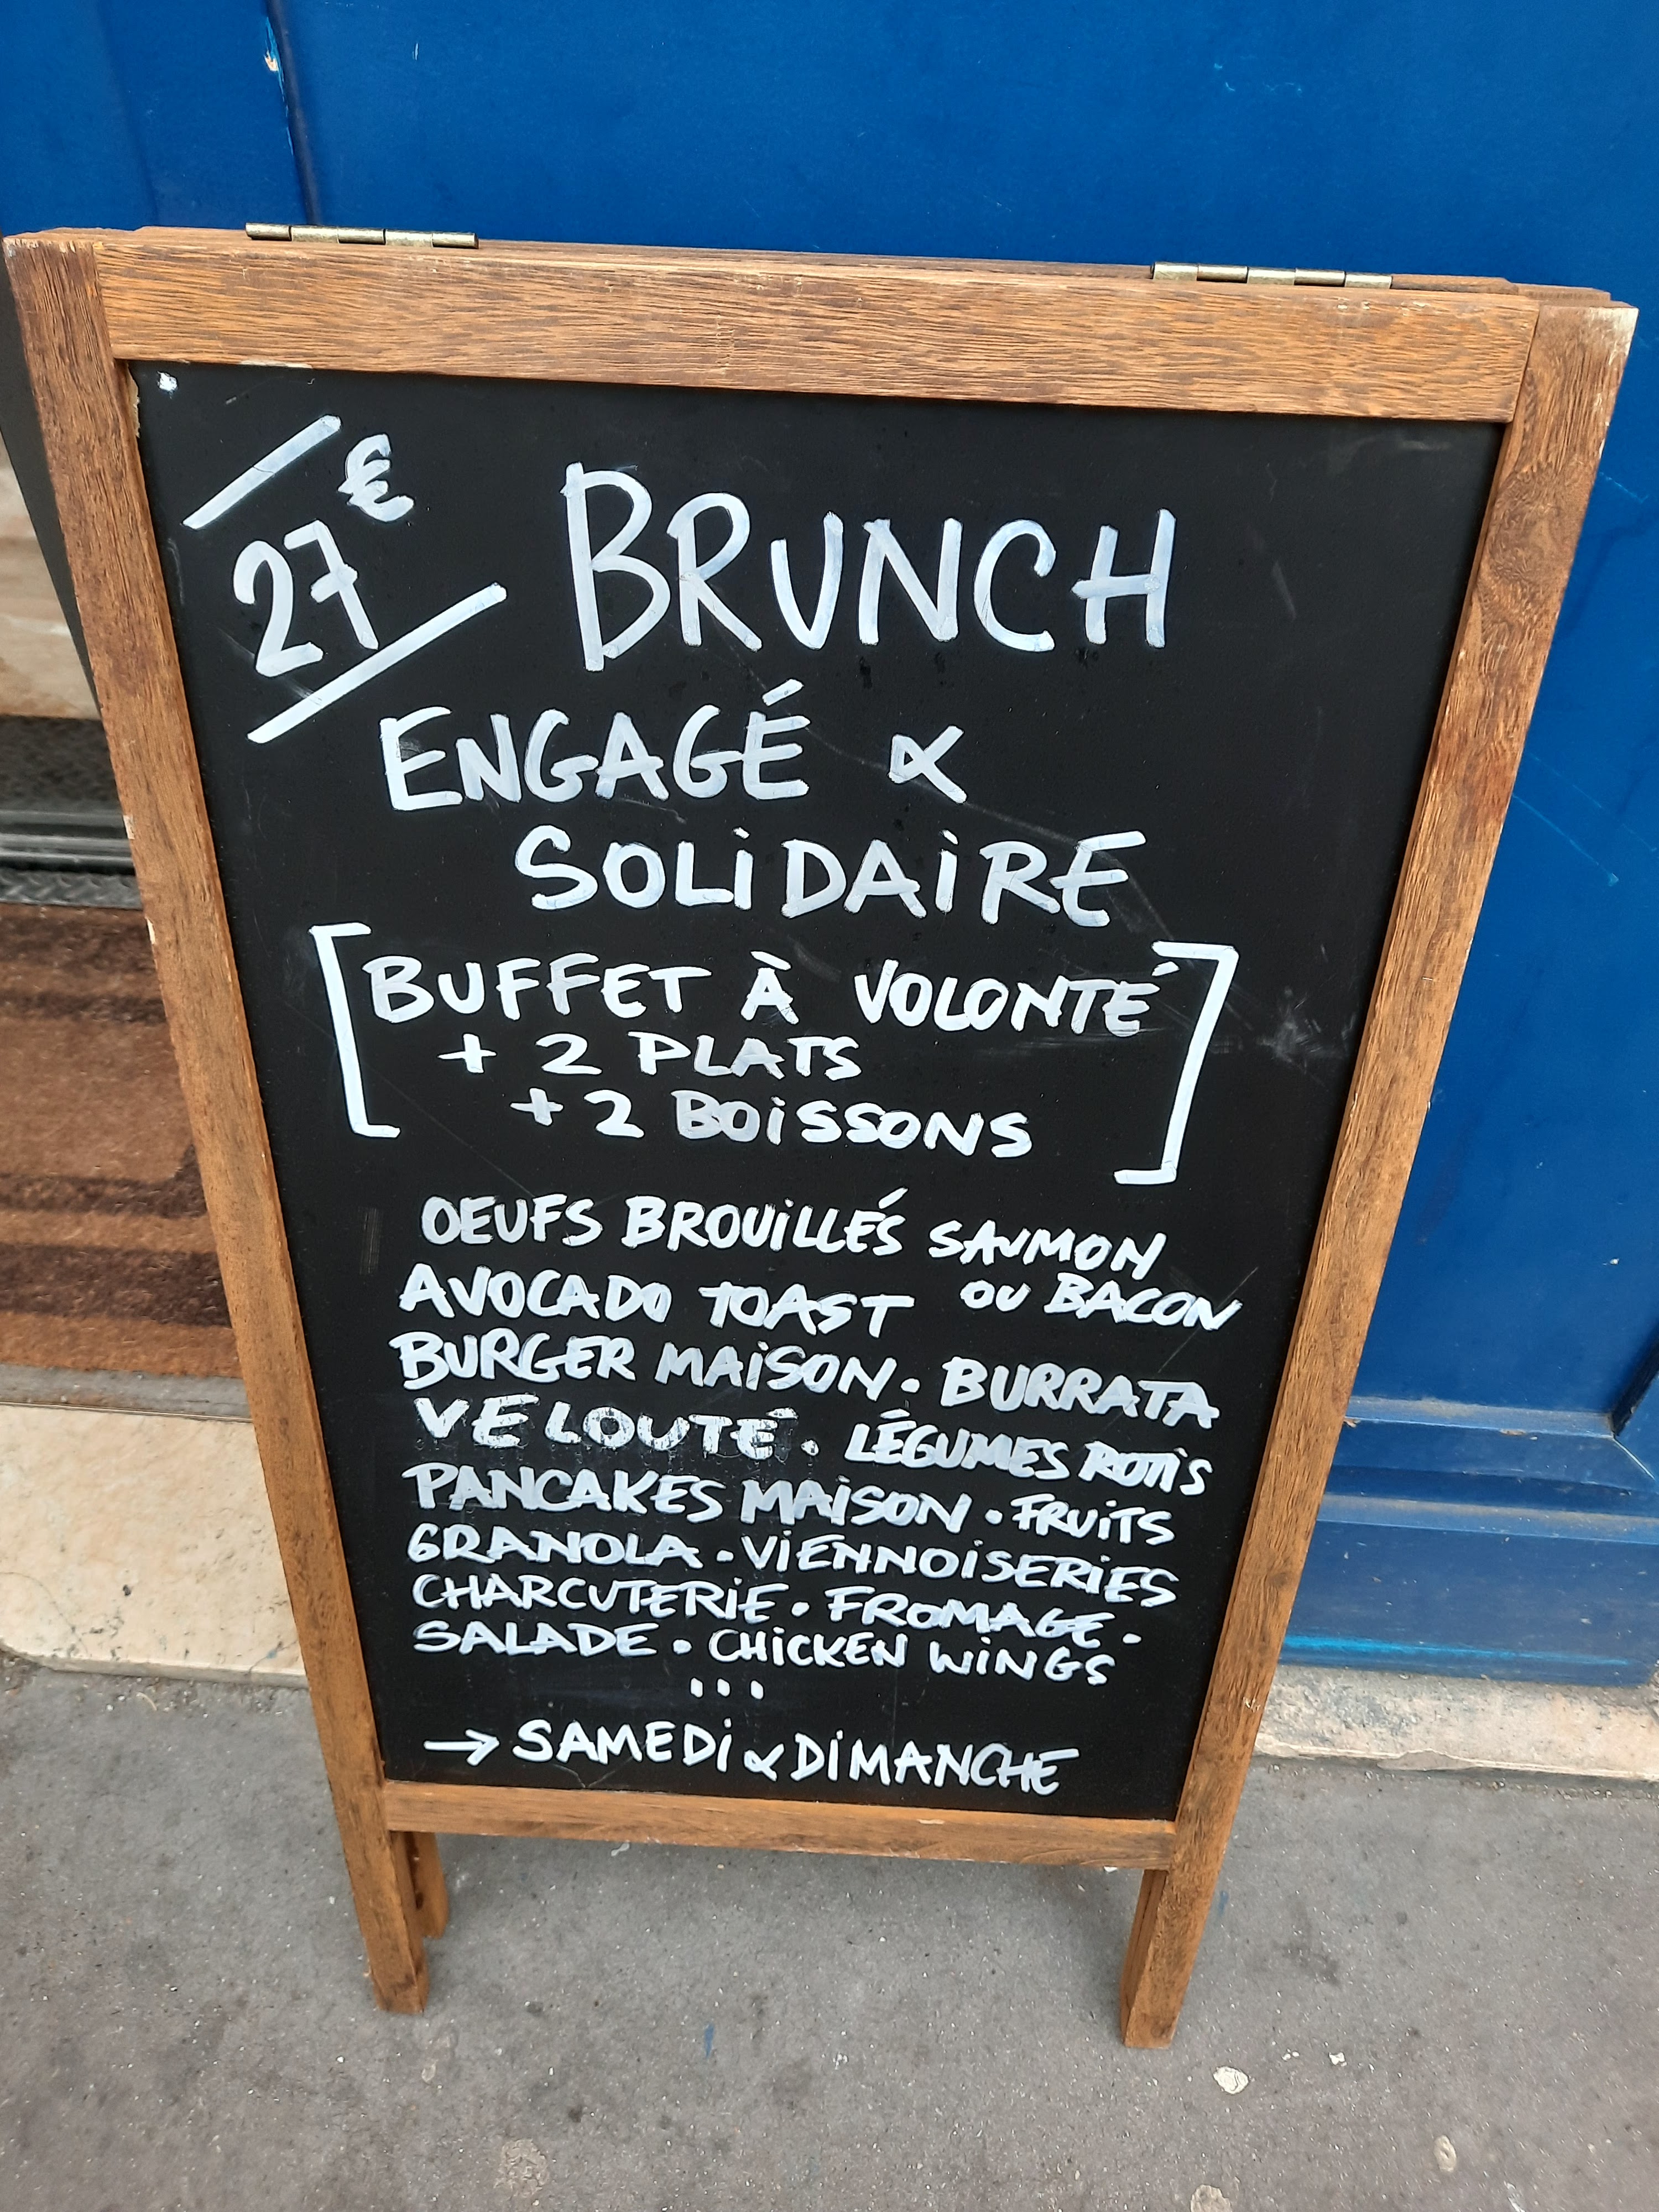 27€
BRUNCH
ENGAGÉ &
SOLIDAIRE
[BUFFET À VOLONTÉ
+ 2 PLATS
+ 2 BOISSONS]
OEUFS BROUILLÉS SAUMON
OU BACON
AVOCADO TOAST
BURGER MAISON . BURRATA
VELOUTÉ . LÉGUMES ROTIS
PANCAKES MAISON . FRUITS
GRANOLA . VIENNOISERIES
CHARCUTERIE . FROMAGE .
SALADE . CHICKEN WINGS
...
→ SAMEDI & DIMANCHE